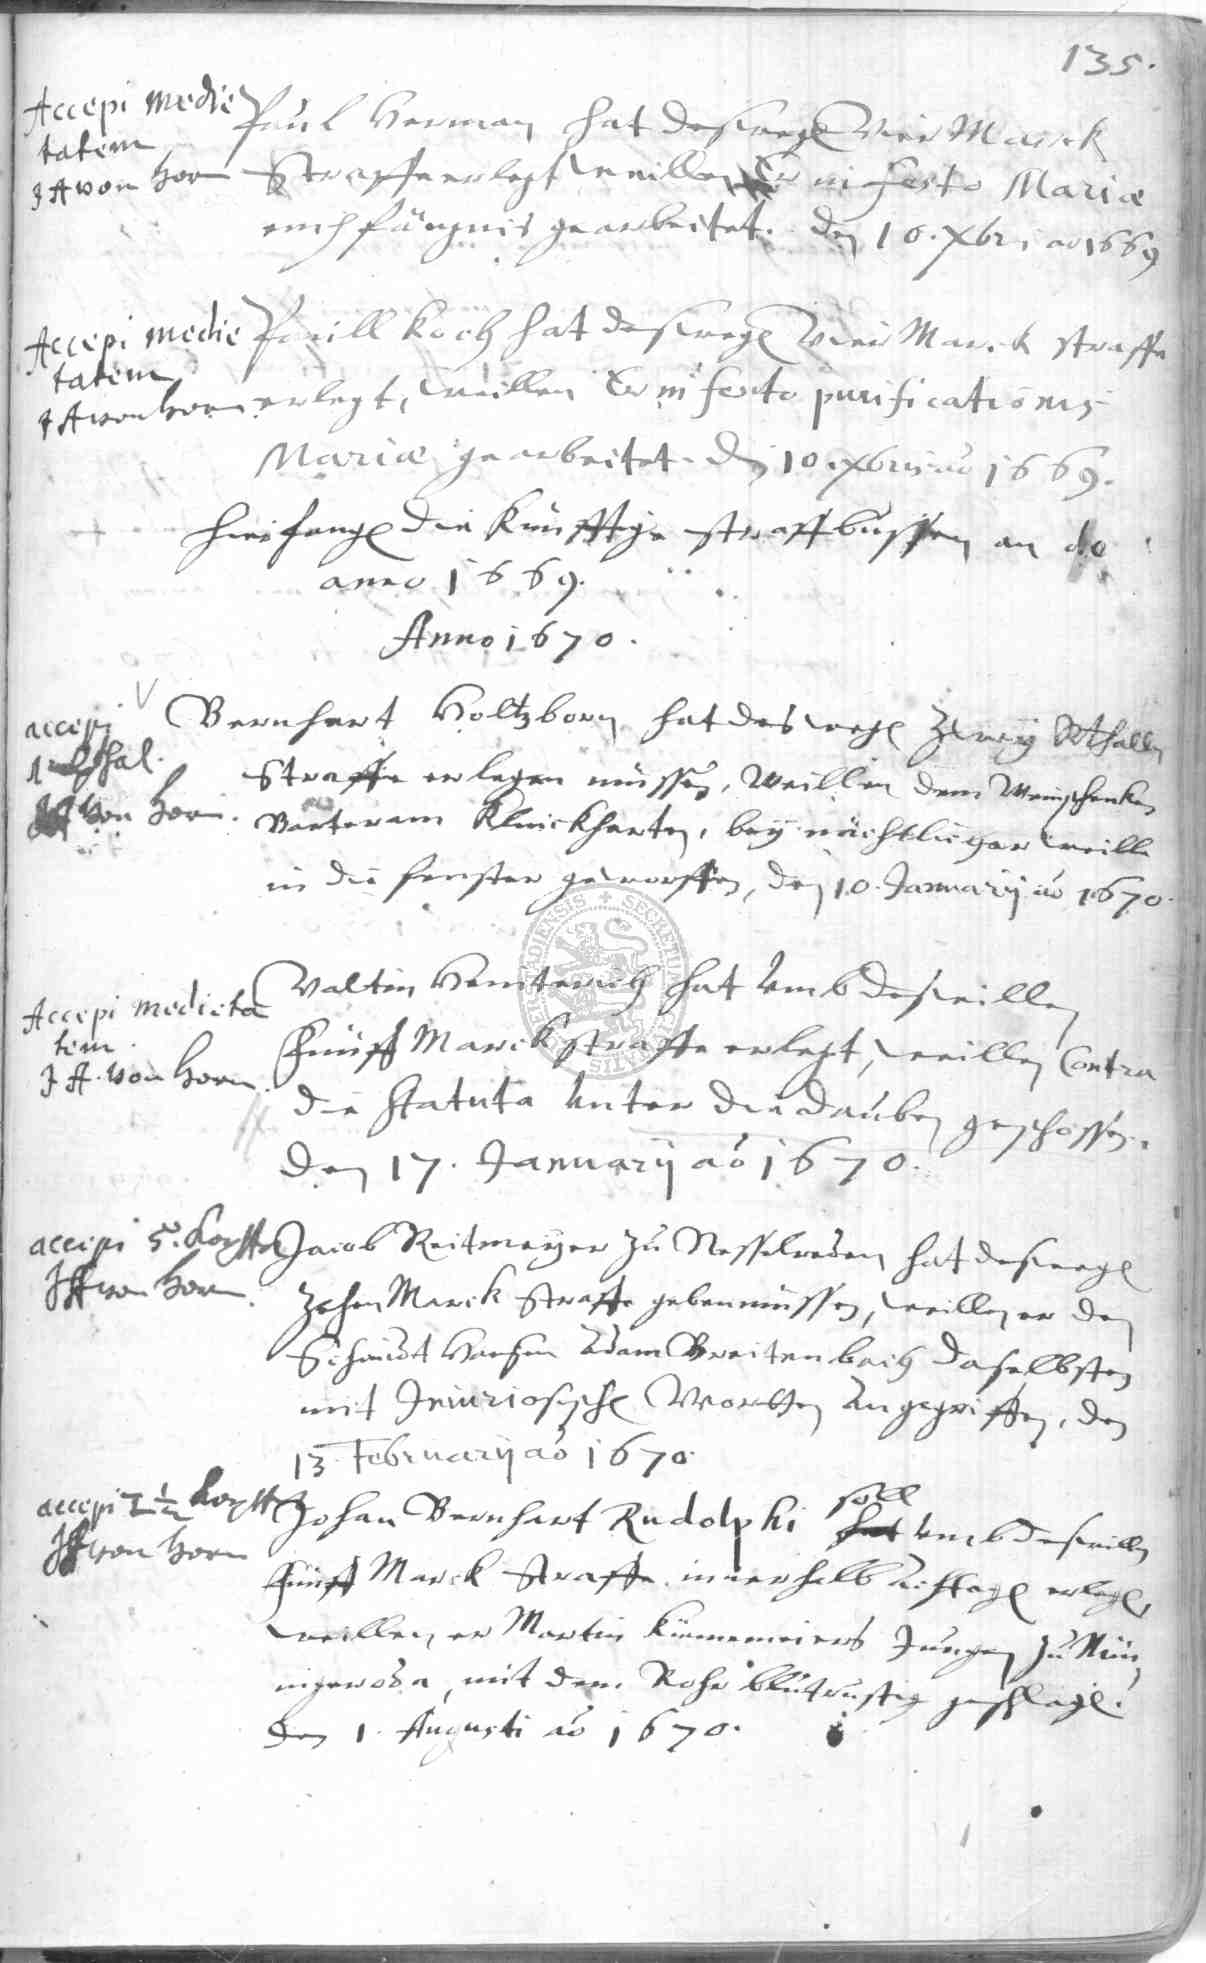 135.
Accepi medie
tatem
J A von Horn
Paul Herman hat deswegen Vier Marck
Straffe erlegt weillen Er in festo Mariæ
empfängnis gearbeitet. den 10. Xbri ao 1669
Accepi medie
tatem
J A von Horn
Paull Koch hat deswegen Vier Marck straffe
erlegt, weillen Er in festo purificationis
Mariæ gearbeitet. den 10. Xbris ao 1669.
hie fangen die Künfftige straffbussen an de
anno 1669.
Anno 1670.
accepi
1 thal.
JA von Horn.
Bernhart Holtzborn hat deswegen Zwey Rthallr
Straffe erlegen müssen, Weillen dem Weinschenken
Bartram Klinckharten, bey nächtlicher weille
in die fenster geworffen, den 10. Januarij ao 1670.
Accepi medieta
tem.
J A. von Horn.
Valtin Hentterich hat umb deswillen
fünff Marck straffe erlegt, weillen Contra
die statuta unter die dauben geschossen.
Den 17. Januarij ao 1670.
accepi 5. Kopfst
JA von Horn.
Jacob Reitmeyer zu Nesselreden hat deswegen
Zehen Marck Straffe geben müssen, weillen er den
Schmidt Hansen Adam Breitenbach daselbsten
mit Injuriosischen Worten angegriffen, den
13 Februarij ao 1670.
accepi 2 1/2 Kopfst
JA von Horn
soll
Johan Bernhart Rudolphi hat umb deswillen
fünff Marck Straffe innerhalb achtagen erlegen,
weillen er Martin Kümmeiers Jungen zu Nün
ingeroda, mit dem Rohr blutrustig geschlagen.
den 1. Augusti ao 1670.